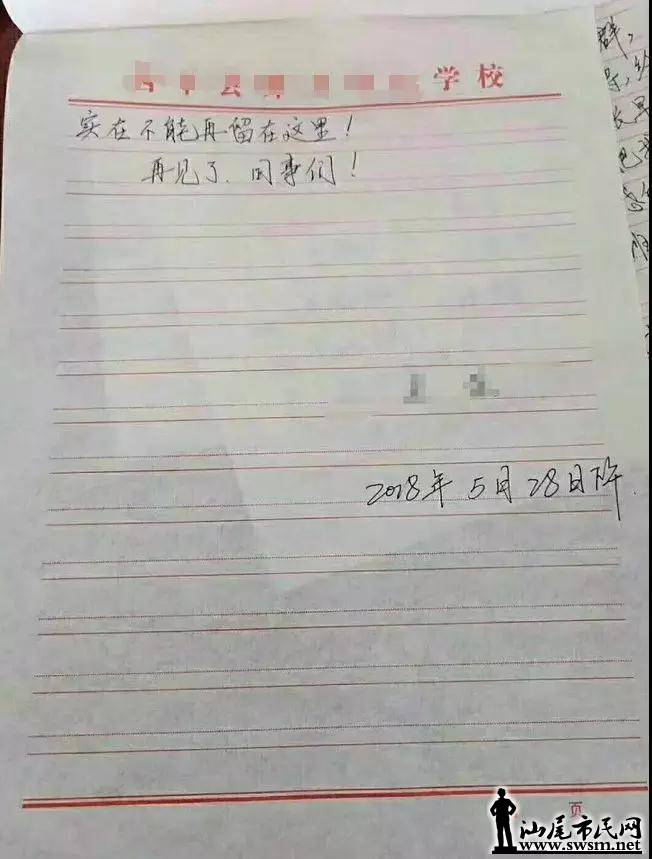 学校
实在不能再留在这里！
再见了、同事们！
2018年5月28日下午
页
汕尾市民网
www.swsm.net